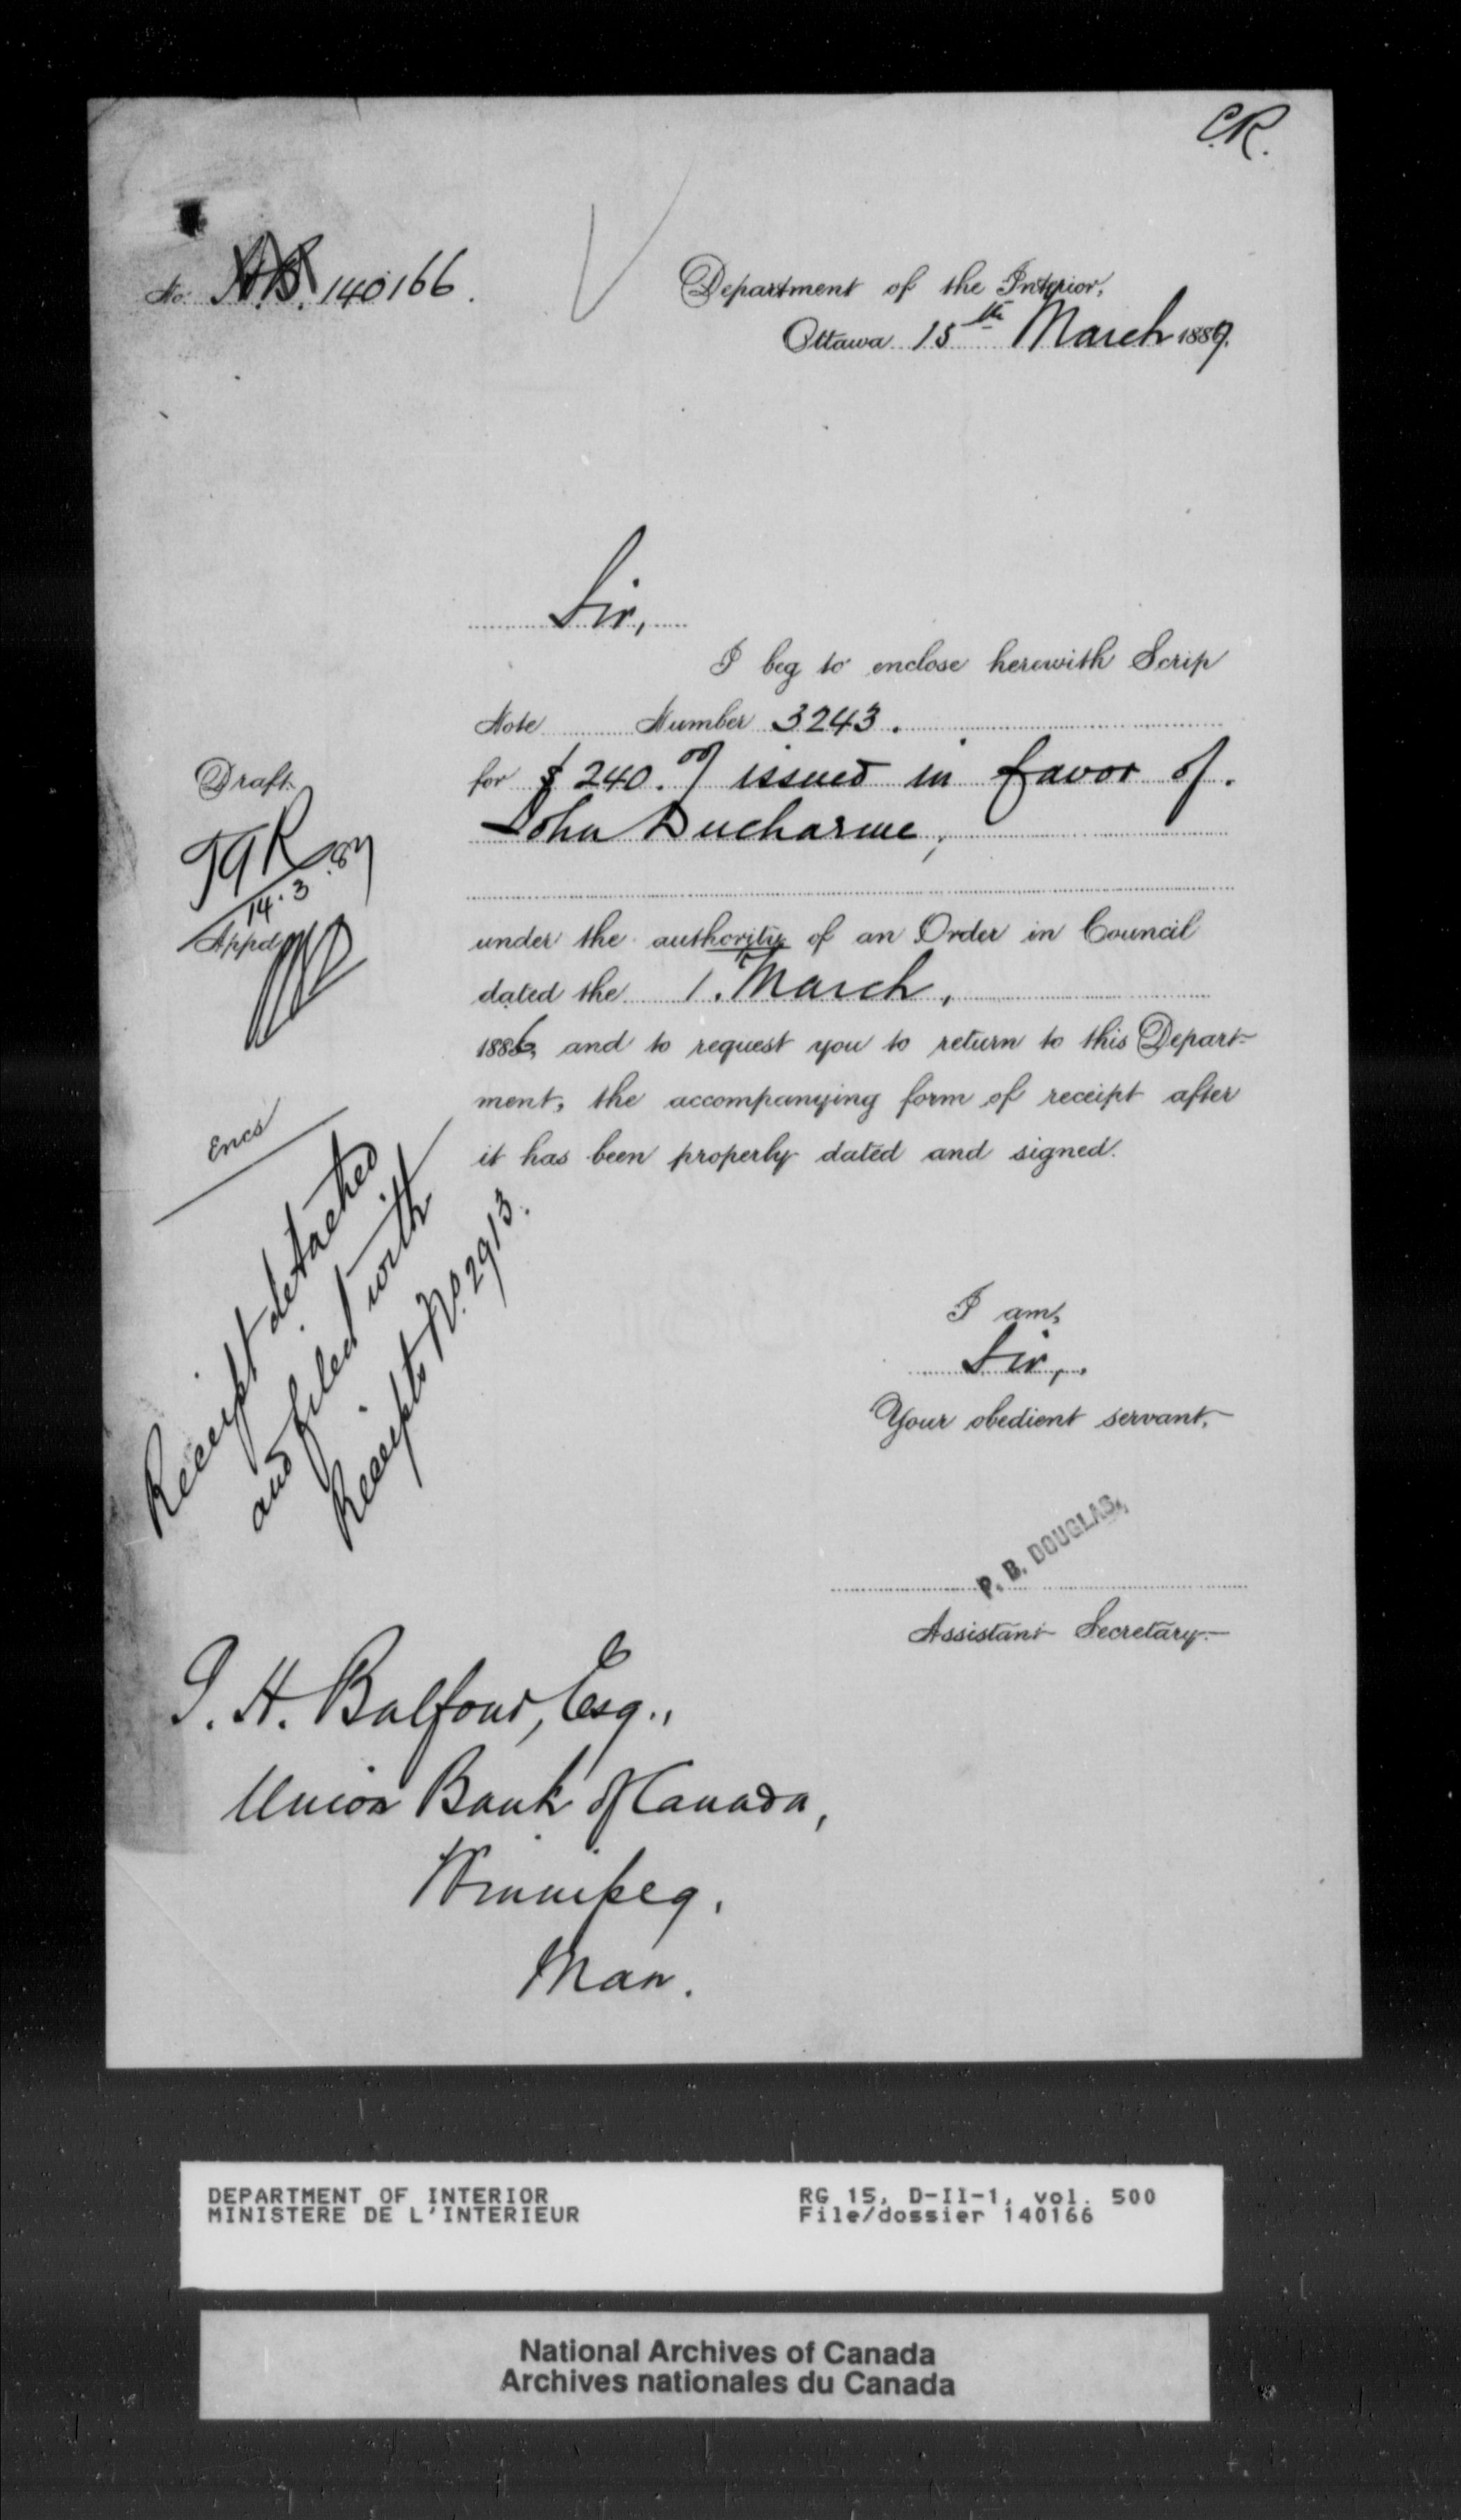 C.R.
No. 140166.
Department of the Interior,
Ottawa 15th March 1887.
Sir,
I beg to enclose herewith Scrip
Note Number 3243.
for $240.00 issued in favor of.
John Ducharme,
under the authority of an Order in Council
dated the 1. March,
1886, and to request you to return to this Depart-
ment, the accompanying form of receipt after
it has been properly dated and signed.
Draft
14.3.87
Appd
Encs
Receipt detached
and filed with
Receipts No. 2913.
I am,
Sir,
Your obedient servant,
P. B. DOUGLAS,
Assistant Secretary.
H. Balfour, Esq.,
Union Bank of Canada,
Winnipeg.
Man.
DEPARTMENT OF INTERIOR
MINISTERE DE L'INTERIEUR
RG 15, D-II-1, vol. 500
File/dossier 140166
National Archives of Canada
Archives nationales du Canada